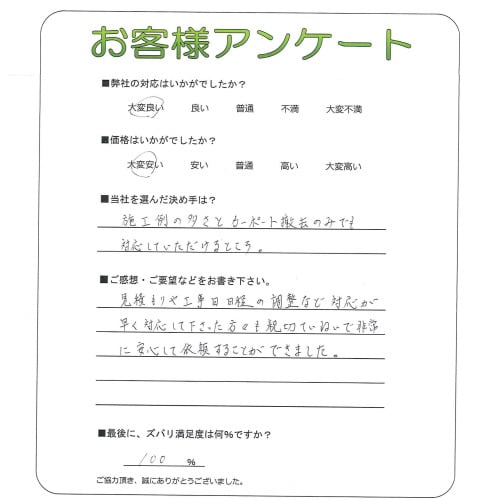 お客様アンケート
■弊社の対応はいかがでしたか？
大変良い 良い 普通 不満 大変不満
■価格はいかがでしたか？
大変安い 安い 普通 高い 大変高い
■当社を選んだ決め手は？
施工例の多さとカーポート撤去のみでも
対応していただけるところ。
■ご感想・ご要望などをお書き下さい。
見積もりや工事日日程の調整など対応が
早く対応して下さった方々も親切ていねいで非常
に安心して依頼することができました。
■最後に、ズバリ満足度は何％ですか？
100 %
ご協力頂き、誠にありがとうございました。